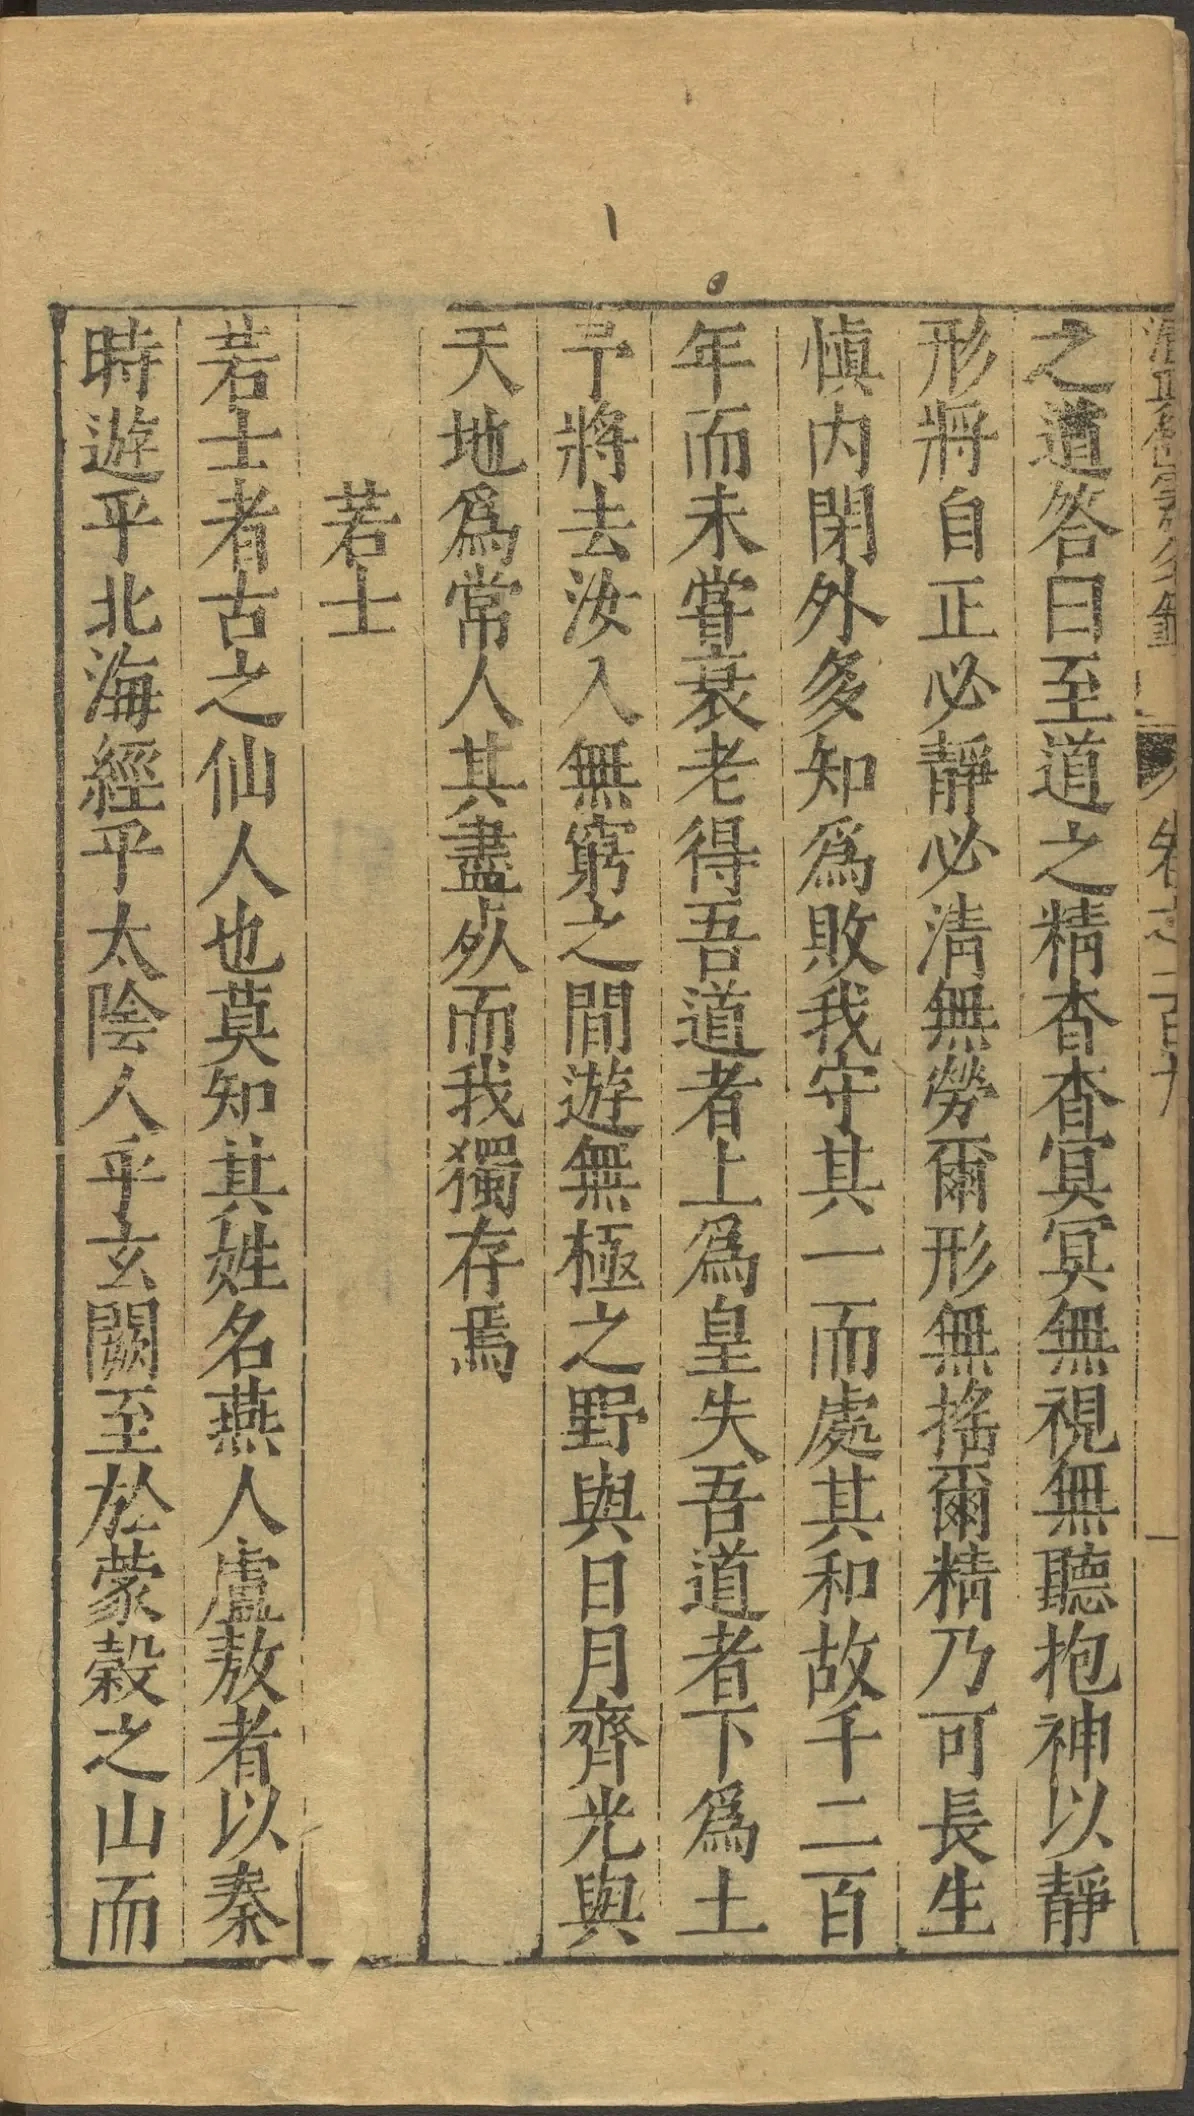 之道答曰至道之精杳杳冥冥無視無聽抱神以靜
形將自正必靜必淸無勞爾形無搖爾精乃可長生
慎內閉外多知爲敗我守其一而處其和故千二百
年而未嘗衰老得吾道者上爲皇失吾道者下爲土
予將去汝入無窮之間遊無極之野與日月齊光與
天地爲常人其盡死而我獨存焉
若士
若士者古之仙人也莫知其姓名燕人盧敖者以秦
時遊乎北海經乎太陰人乎玄闕至於蒙穀之山而